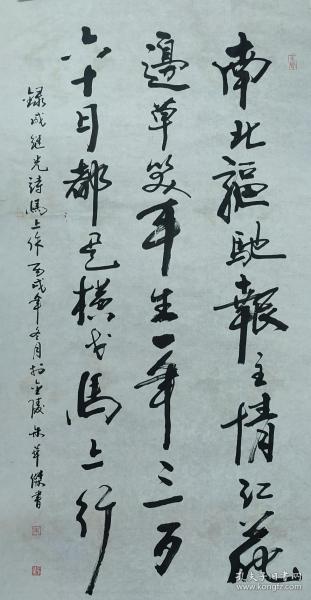 南北驅馳報主情江花
邊草笑平生一年三百
六十日都是横戈馬上行
錄戚继光詩馬上作丙戌年冬月於金陵朱華傑書
孔夫子旧书网